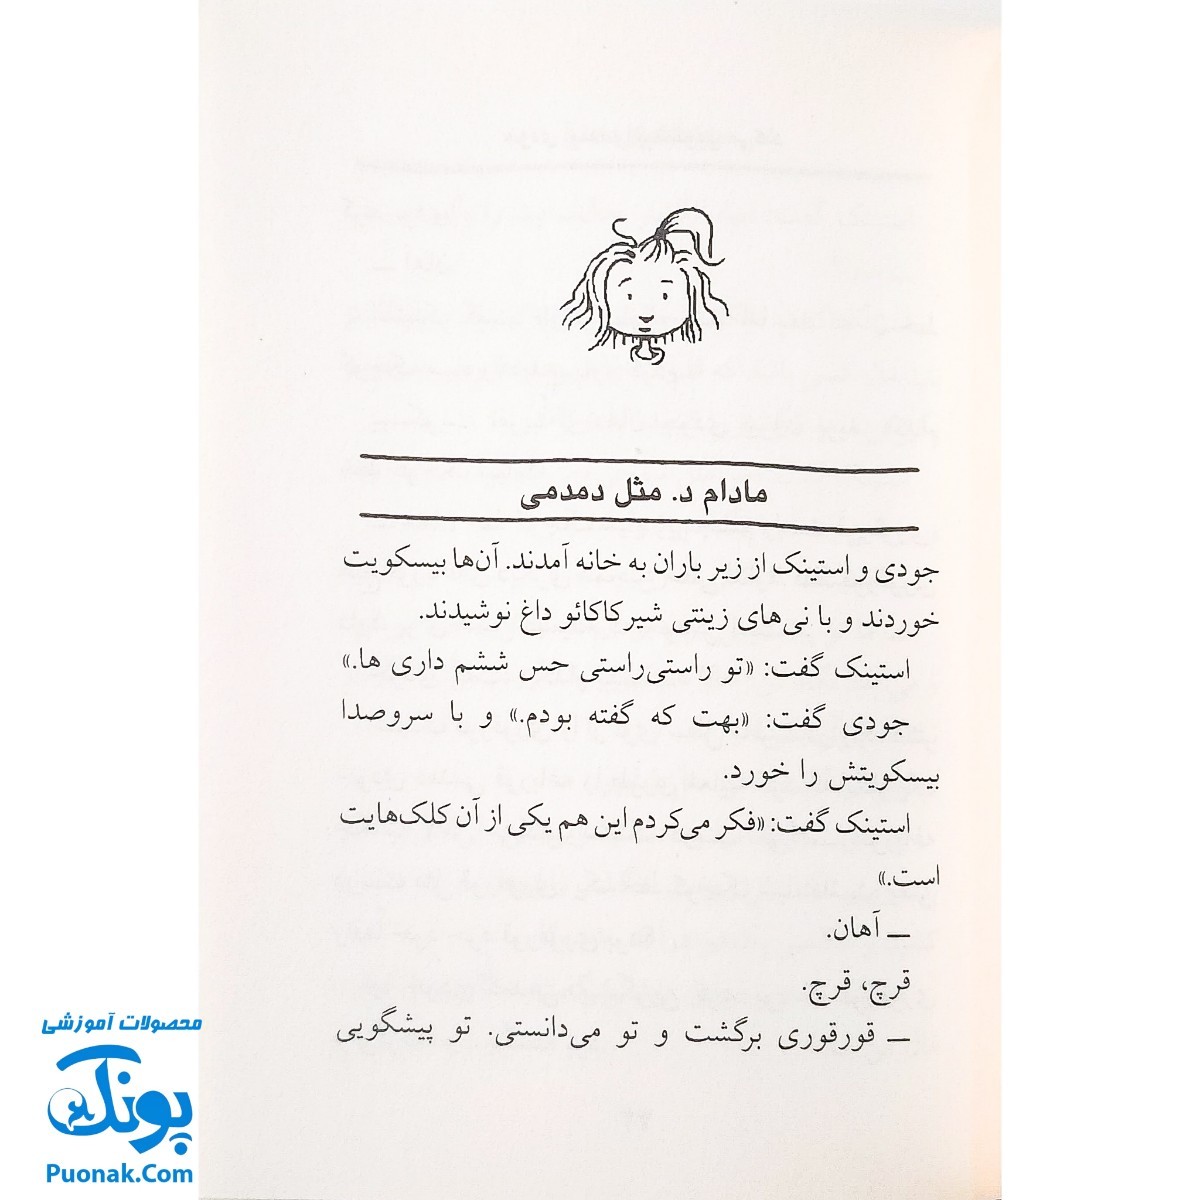 مادام د. مثل دمدمی
جودی و استینک از زیر باران به خانه آمدند. آن‌ها بیسکویت
خوردند و با نی‌های زینتی شیرکاکائو داغ نوشیدند.
استینک گفت: «تو راستی‌راستی حس ششم داری ها.»
جودی گفت: «بهت که گفته بودم.» و با سروصدا
بیسکویتش را خورد.
استینک گفت: «فکر می‌کردم این هم یکی از آن کلک‌هایت
است.»
ــ آهان.
قرچ، قرچ.
ــ قورقوری برگشت و تو می‌دانستی. تو پیشگویی
محصولات آموزشی
پونک
Puonak.Com